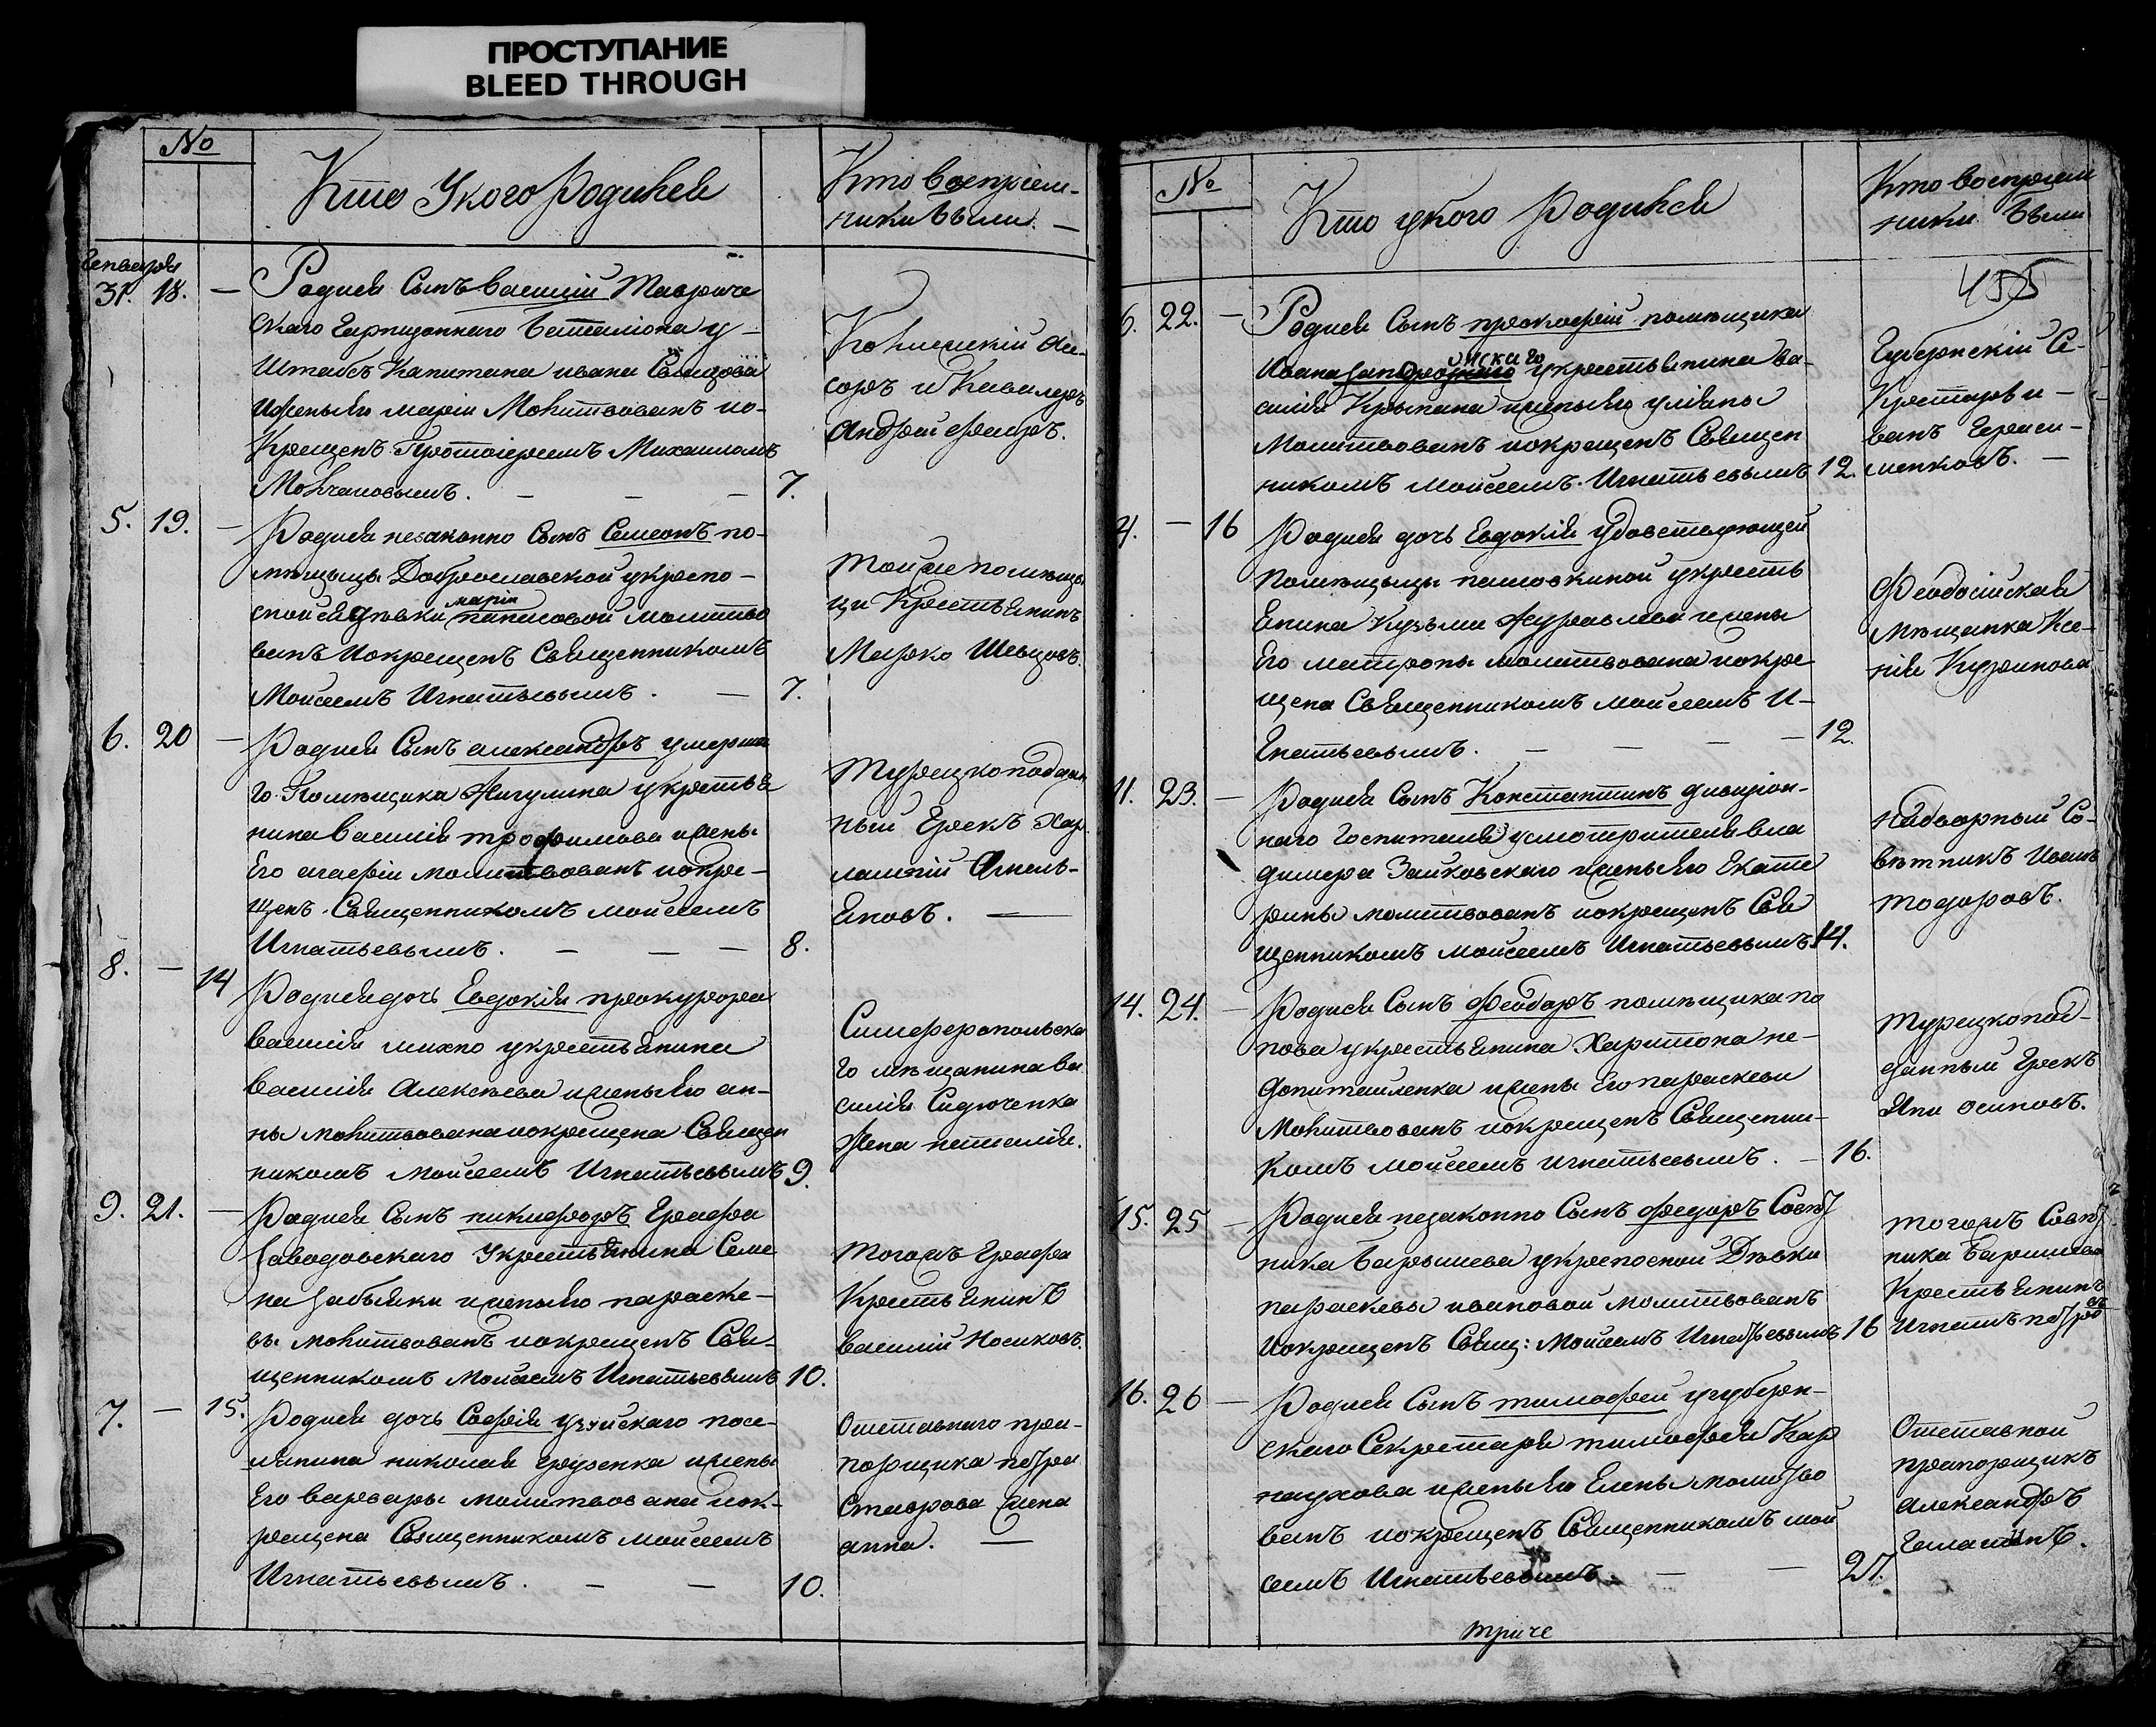 ПРОСТУПАНИЕ
BLEED THROUGH
№
Кто Укого Родился
Кто воспріем-
ники были. —
Генваря
31. 18. —
Родися Сынъ василій Тавриче
скаго Гарнизоннаго баталіона у
Штабсъ Капитана ивана
ижены Его маріи Молитвованъ ио-
Крещенъ Протоіереемъ Михаиломъ
Молчановымъ. — — — 7.
Колежскій Асе-
соръ и Кавалеръ
Андрей
5. 19. —
Родися незаконно Сынъ Симеонъ по-
мѣщицы Доброславской укрепо-
стной дѣвки марiи молитво
ванъ иокрещенъ Священникомъ
Моисеемъ Игнатьевымъ. — 7.
тойже помѣщи
цы Крестьянинъ
Марко Шевцовъ.
6. 20 —
Родися Сынъ александръ умерша
го Помѣщика Жигулина укрестья
нина василія трофимова ижены
Его агафіи молитвованъ иокре-
щенъ Священникомъ моисеемъ
Игнатьевымъ. — — — 8.
турецкоподдан
ный Грекъ Хар
лампій Амель-
яновъ. —
8. — 14
Родися дочь Евдокія прокурора
василія махно укрестьянина
василія Алексѣева ижены Его ан-
ны молитвована иокрещена Священ
никомъ моисеемъ Игнатьевымъ 9.
Симферопольска
го мѣщанина ва
силія Сидюченка
жена наталія.
9. 21. —
Родися Сынъ никифоръ Графа
Заводовскаго Укрестьянина Семе
на Забыяки ижены Его параске-
вы молитвованъ иокрещенъ Свя-
щенникомъ моисеемъ Игнатьевымъ 10.
тогожъ Графа
Крестьянинъ
василій Носиковъ.
7. — 15.
Родися дочь Софія посе-
лянина николая грузенка ижены
Его варвары молитвована иок-
рещена Священникомъ моисеемъ
Игнатьевымъ. — — 10.
Отставнаго пра-
порщика петра
Ставрова жена
анна. —
№
Кто укого Родился
Кто воспріем
ники были
455
6. 22. —
Родися Сынъ прокофій помѣщика
Ивана укрестьянина ва-
силія ижены Его уліяны
Молитвованъ иокрещенъ Священ
никомъ моисеемъ Игнатьевымъ 12.
Губернскій Се-
Кретарь и-
ванъ Гераси-
менковъ. —
4. — 16
Родися дочь Евдокія
Помѣщицы укресть
янина Кузьмы Журавлева ижены
Его матроны молитвована иокре
щена Священникомъ моисеемъ И-
гнатьевымъ. — — — — 12.
Феодосійская
мѣщанка Ксе-
нія
11. 23. —
Родися Сынъ Константинъ дивизіон-
наго Госпиталя усмотрителя вла
димера Зайковскаго ижены Его Екате
рины молитвованъ иокрещенъ Свя
щенникомъ моисеемъ Игнатьевымъ 14.
надворный Со-
вѣтникъ Иванъ
тодоровъ.
14. 24. —
Родися Сынъ Феодоръ помѣщика по
пова укрестьянина Харитона не-
допиталенка ижены Его параскевы
Молитвованъ иокрещенъ Священни-
Комъ моисеемъ игнатьевымъ. — 16.
турецкопод-
данный Грекъ
Яни осиповъ.
15. 25 —
Родися незаконно Сынъ Федоръ Совѣт
ника Барышева укрепостной Дѣвки
параскевы ивановой молитвованъ
иокрещенъ Свящ: Моисеемъ Игнатьевымъ 16
тогожъ Совѣт
ника Барышева
Крестьянинъ
Игнатъ петровъ
16. 26 —
Родися Сынъ тимофей угуберн-
скаго Секретаря тимофея Кар
наухова ижены Его Елены молитво
ванъ иокрещенъ Священникомъ мои
сеемъ Игнатьевымъ. — — 21.
Отставной
прапорщикъ
александръ
триче